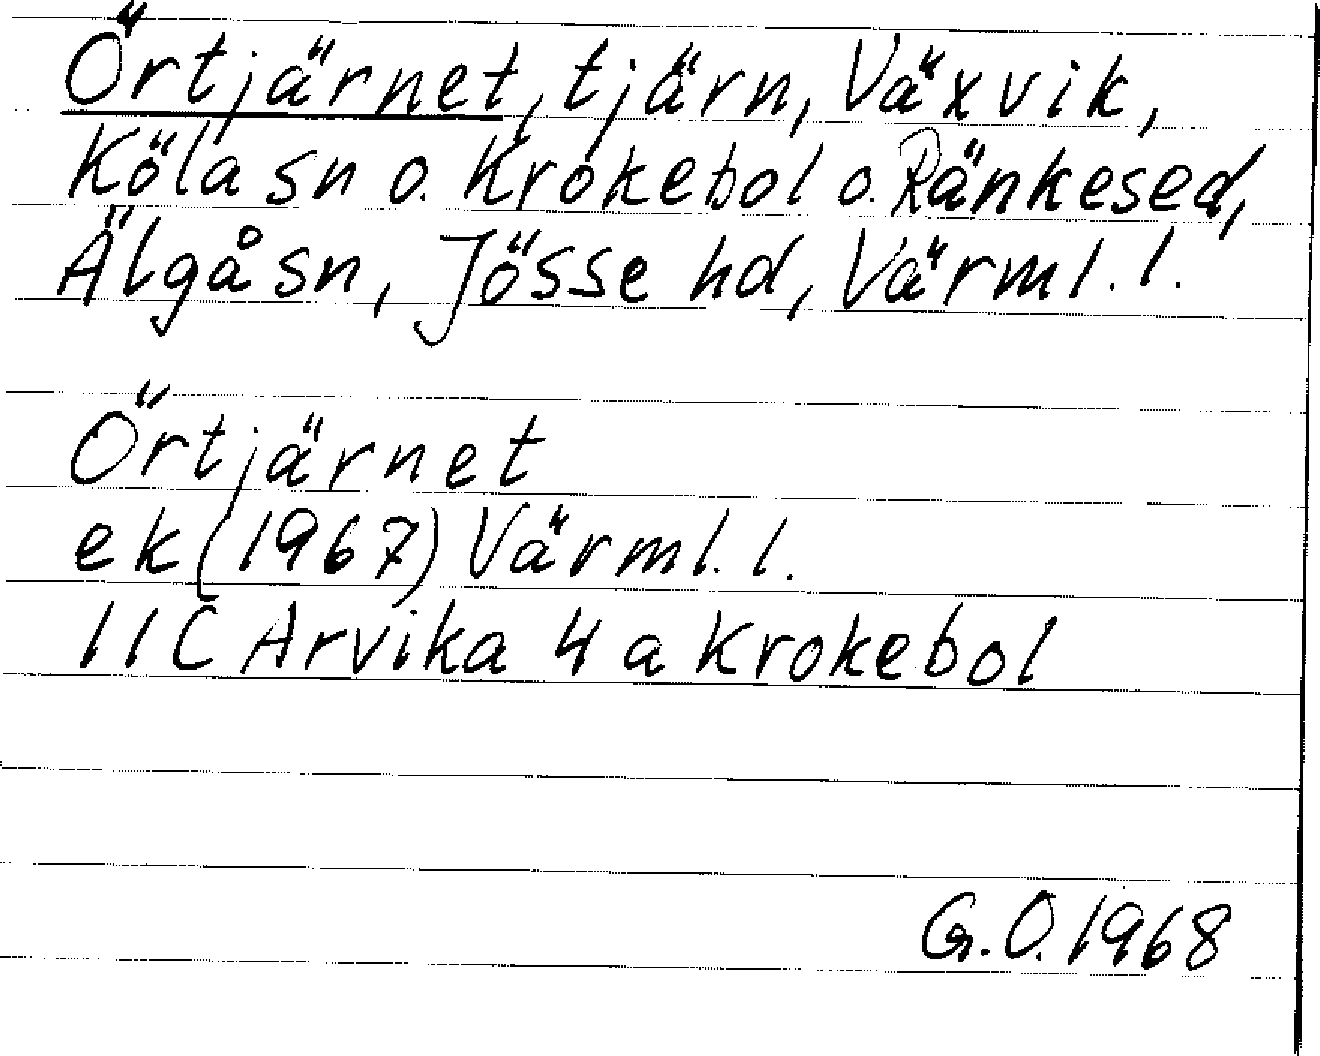 Örtjärnet, tjärn, Växvik,
Köla sn o. Krokebol o. Ränkesed,
Älgå sn, Jösse hd, Värml. l.
Örtjärnet
ek (1967) Värml. l.
11C Arvika 4 a Krokebol
G.O. 1968